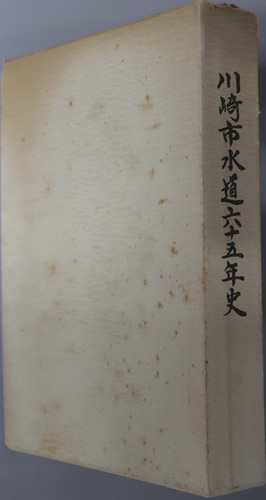 川崎市水道六十五年史